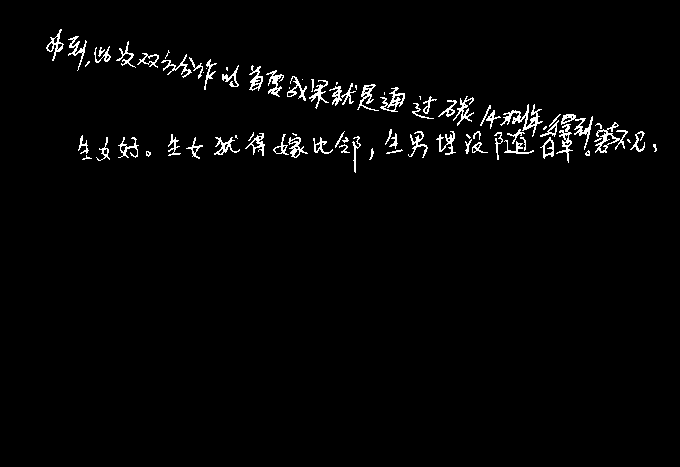 到,此次双方合作的首要成果就是通过碳14测年得到
生女好。生女犹得嫁比邻,生男埋没随百草。君不见,